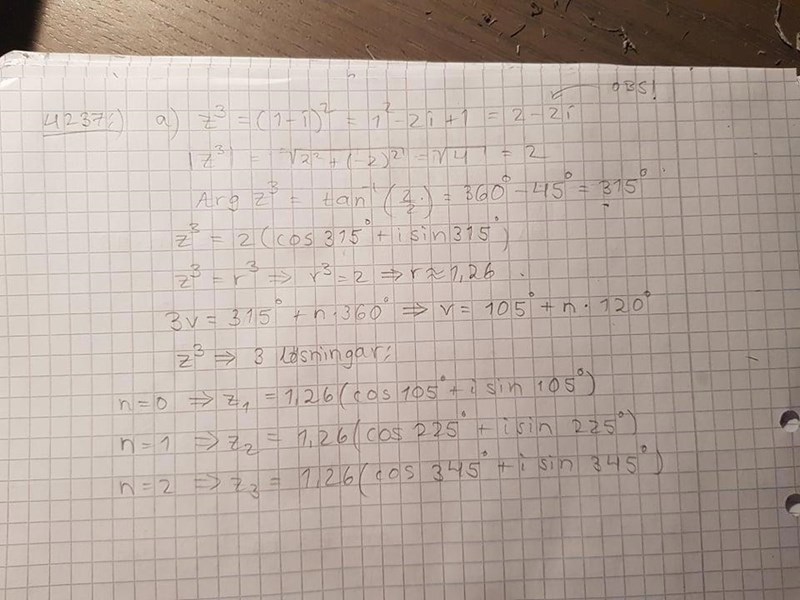 OBS!
4237:) a) z³ = (1-i)² = 1² - 2i + 1 = 2 - 2i
|z³| = √2² + (-2)² = √4 = 2
Arg z³ = tan⁻¹ (2/2) = 360° - 45° = 315°
z³ = 2 (cos 315° + i sin 315°)
z³ = r³ ⇒ r³ = 2 ⇒ r ≈ 1,26
3v = 315° + n·360° ⇒ v = 105° + n · 120°
z³ ⇒ 3 lösningar:
n=0 ⇒ z₁ = 1,26 (cos 105° + i sin 105°)
n=1 ⇒ z₂ = 1,26 (cos 225° + i sin 225°)
n=2 ⇒ z₃ = 1,26 (cos 345° + i sin 345°)